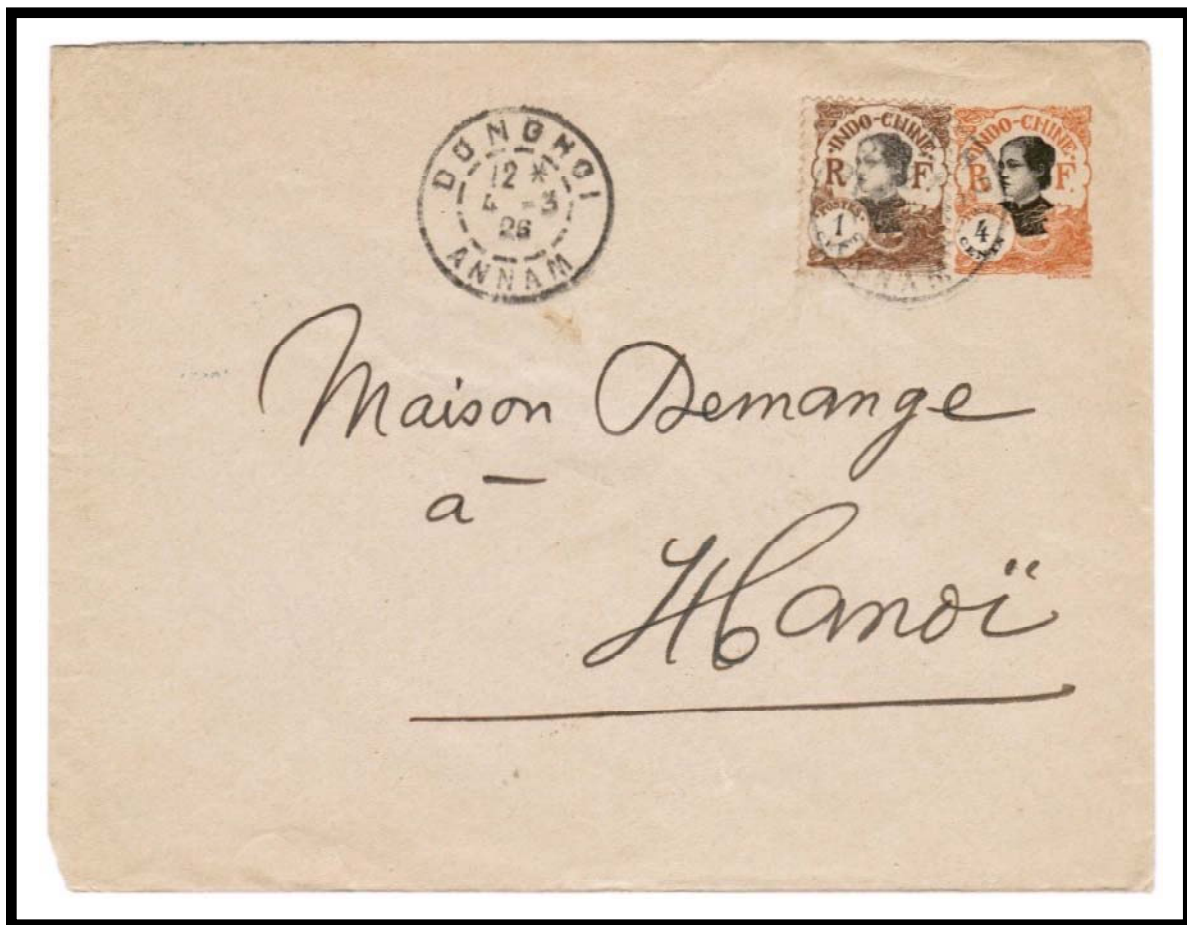 DONGHOI
12 *
4 - 3
26
ANNAM
INDO-CHINE
R F
POSTES
1
CENT
INDO-CHINE
R F
POSTES
4
CENTS
Maison Demange
à
Hanoï